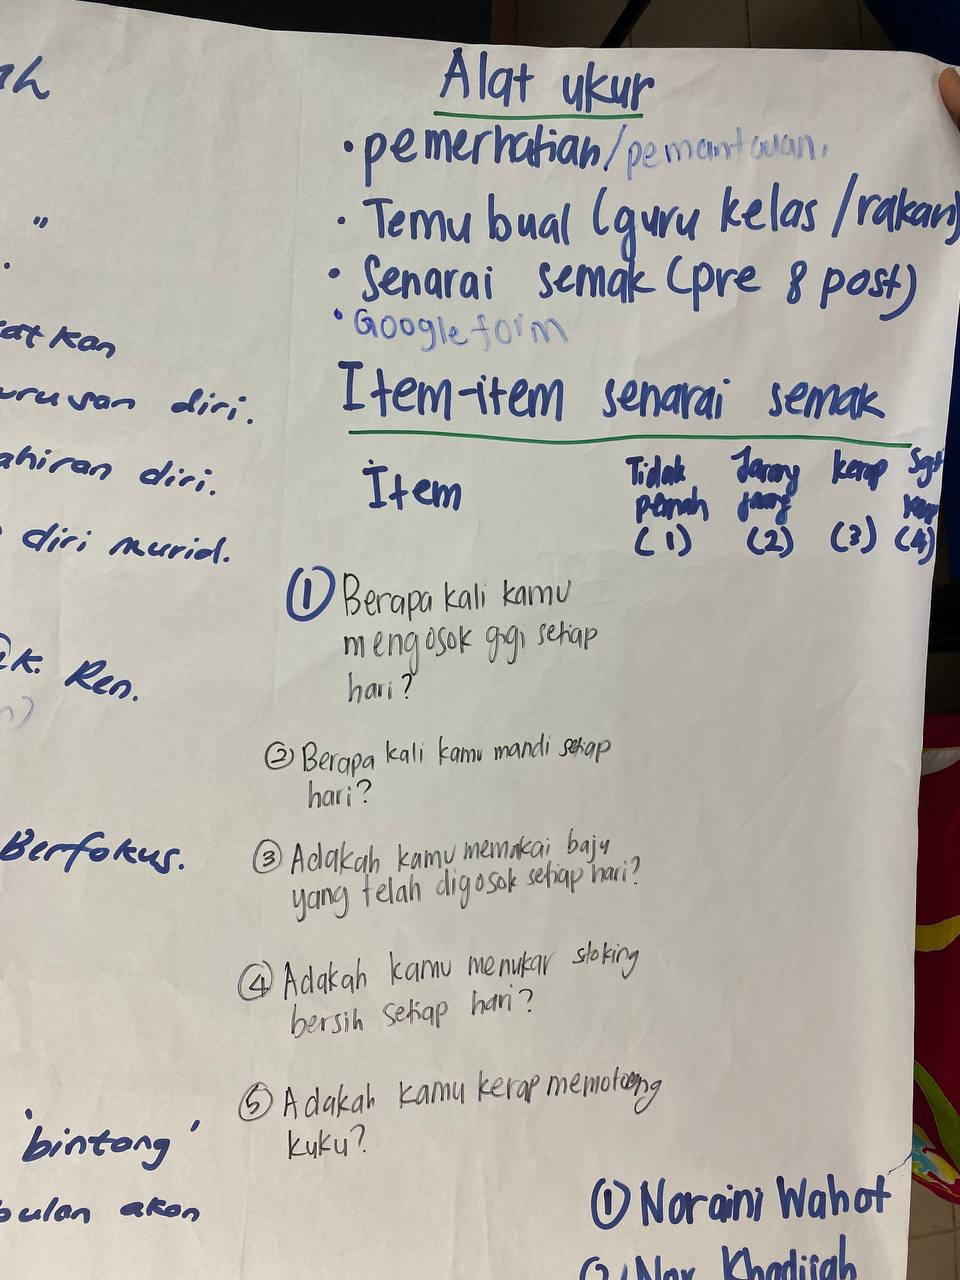 "
.
urusan diri.
diri.
diri murid.
Ren.
Berfokus.
'bintang'
bulan akan
Alat ukur
• pemerhatian/pemantauan.
• Temu bual (guru kelas/rakan)
• Senarai semak (pre & post)
• Google form
Item-item senarai semak
Item Tidak pernah (1) Jarang jarang (2) kerap (3) Sgt kerap (4)
① Berapa kali kamu
mengosok gigi setiap
hari?
② Berapa kali kamu mandi setiap
hari?
③ Adakah kamu memakai baju
yang telah digosok setiap hari?
④ Adakah kamu menukar stoking
bersih setiap hari?
⑤ Adakah kamu kerap memotong
kuku?
① Noraini Wahot
② Nor Khadijah